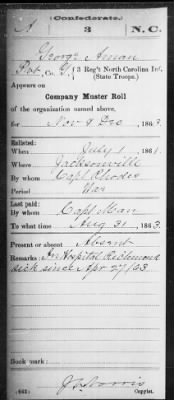 (Confederate.)
A 3 N.C.
George Aman
Pvt, Co. G, 3 Reg't North Carolina Inf.
(State Troops.)
Appears on
Company Muster Roll
of the organization named above,
for Nov & Dec, 1863.
Enlisted:
When July 1, 1861.
Where Jacksonville
By whom Capt Rhodes
Period War
Last paid:
By whom Capt Man
To what time Aug 31, 1863.
Present or absent Absent
Remarks: In Hospital Richmond
sick since Apr 27/63
Book mark:
(642) Copyist.